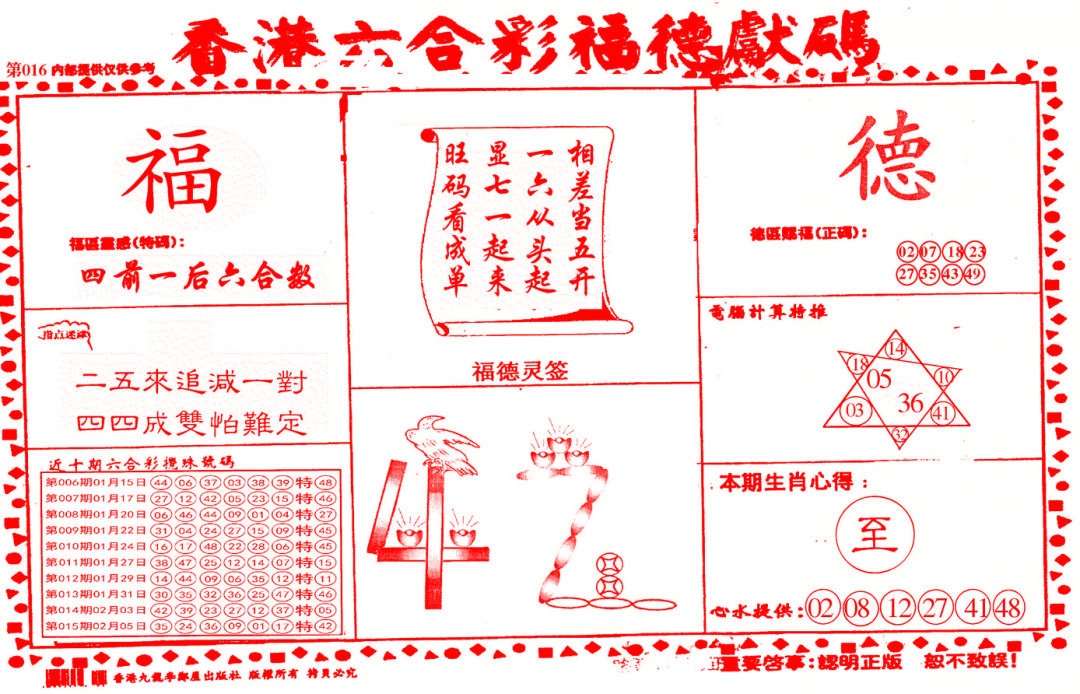 香港六合彩福德獻碼
第016 内部提供仅供参考
福
福區靈感(特碼):
四前一后六合数
指点迷津
二五來追减一對
四四成雙怕難定
近十期六合彩攪珠號碼
第006期01月15日 44 06 37 03 38 39 特 48
第007期01月17日 27 12 42 05 23 15 特 46
第008期01月20日 06 46 44 09 01 04 特 27
第009期01月22日 31 04 24 27 15 09 特 45
第010期01月24日 16 17 48 22 28 06 特 45
第011期01月27日 38 47 25 12 14 07 特 15
第012期01月29日 14 44 09 06 35 12 特 11
第013期01月31日 30 35 32 36 25 47 特 46
第014期02月03日 42 39 23 27 12 37 特 05
第015期02月05日 35 24 36 09 01 17 特 42
相差当五开
一六从头起
显七一起来
旺码看成单
福德灵签
德
德區賜福(正碼):
02 07 18 23
27 35 43 49
電腦計算特推
14
18
10
05
36
03
41
32
本期生肖心得:
至
心水提供: 02 08 12 27 41 48
重要啓事:認明正版 恕不致誤!
香港九龍李鄭屋出版社 版權所有 拷貝必究